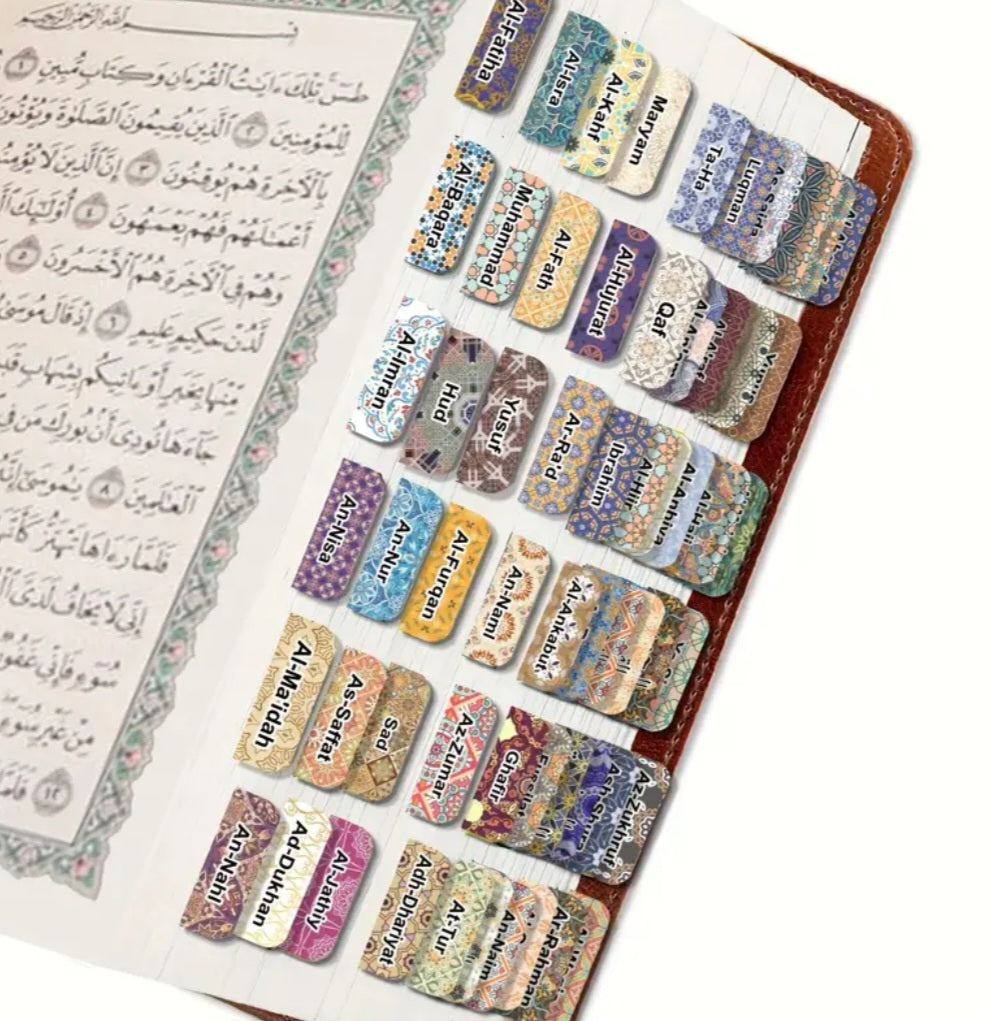 بِسْمِ ٱللَّهِ ٱلرَّحْمَٰنِ ٱلرَّحِيمِ
طسٓ تِلْكَ ءَايَٰتُ ٱلْقُرْءَانِ وَكِتَابٍ مُّبِينٍ ١
لِلْمُؤْمِنِينَ ٢ ٱلَّذِينَ يُقِيمُونَ ٱلصَّلَوٰةَ وَيُؤْتُونَ
بِٱلْءَاخِرَةِ هُمْ يُوقِنُونَ ٣ إِنَّ ٱلَّذِينَ لَا
أَعْمَٰلَهُمْ فَهُمْ يَعْمَهُونَ ٤ أُو۟لَٰٓئِكَ
وَهُمْ فِى ٱلْءَاخِرَةِ هُمُ ٱلْأَخْسَرُونَ ٥
لَّدُنْ حَكِيمٍ عَلِيمٍ ٦ إِذْ قَالَ مُوسَىٰ
مِّنْهَا بِخَبَرٍ أَوْ ءَاتِيكُم بِشِهَابٍ
جَآءَهَا نُودِىَ أَنۢ بُورِكَ مَن فِى
ٱلْعَٰلَمِينَ ٨ يَٰمُوسَىٰٓ إِنَّهُۥٓ
فَلَمَّا رَءَاهَا تَهْتَزُّ كَأَنَّهَا
إِنِّى لَا يَخَافُ لَدَىَّ
سُوٓءٍ فَإِنِّى غَفُورٌ
مِنْ غَيْرِ سُوٓءٍ
١٢
Al-Fatiha
Al-Isra
Al-Kahf
Maryam
Ta-Ha
Luqman
Al-Baqara
Muhammad
Al-Fath
Al-Hujurat
Qaf
Al-Imran
Hud
Yusuf
Ar-Ra'd
Ibrahim
Al-Hijr
Al-Anbiya
An-Nisa
An-Nur
Al-Furqan
An-Naml
Al-Ankabut
Al-Ma'idah
As-Saffat
Sad
Az-Zumar
Ghafir
Az-Zukhruf
An-Nahl
Ad-Dukhan
Al-Jathiy
Adh-Dhariyat
At-Tur
An-Najm
Ar-Rahman